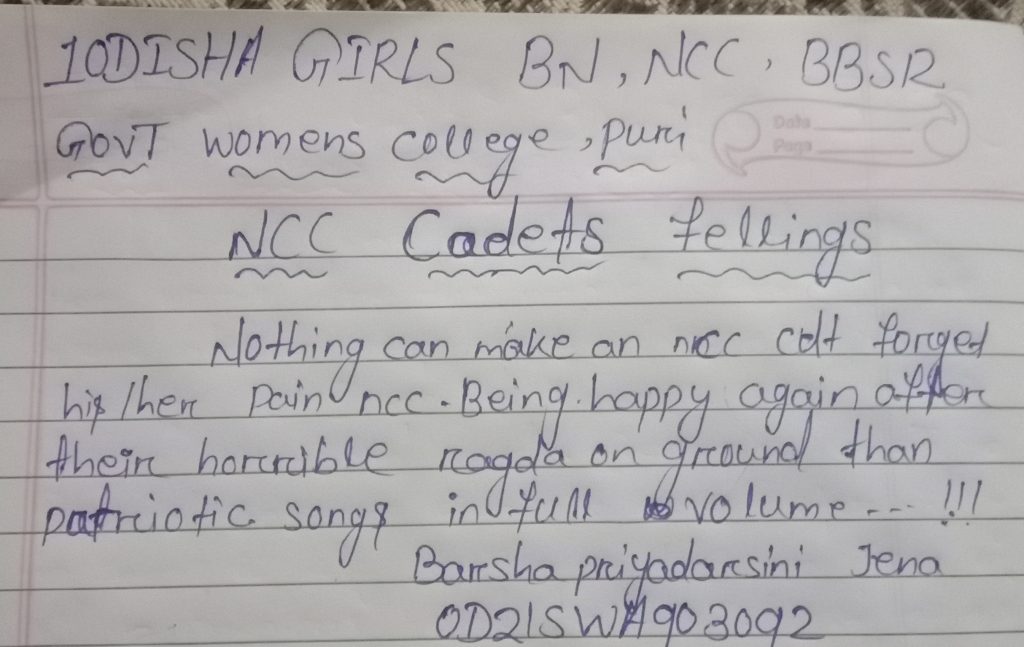 1ODISHA GIRLS BN, NCC, BBSR
GOVT womens college, puri
Date
Page
NCC Cadets fellings
Nothing can make an ncc cdt forget
his/her pain ncc. Being happy again after
their horrible ragda on ground than
patriotic songs in full volume --- !!!
Barsha priyadarsini Jena
OD21SWA903092